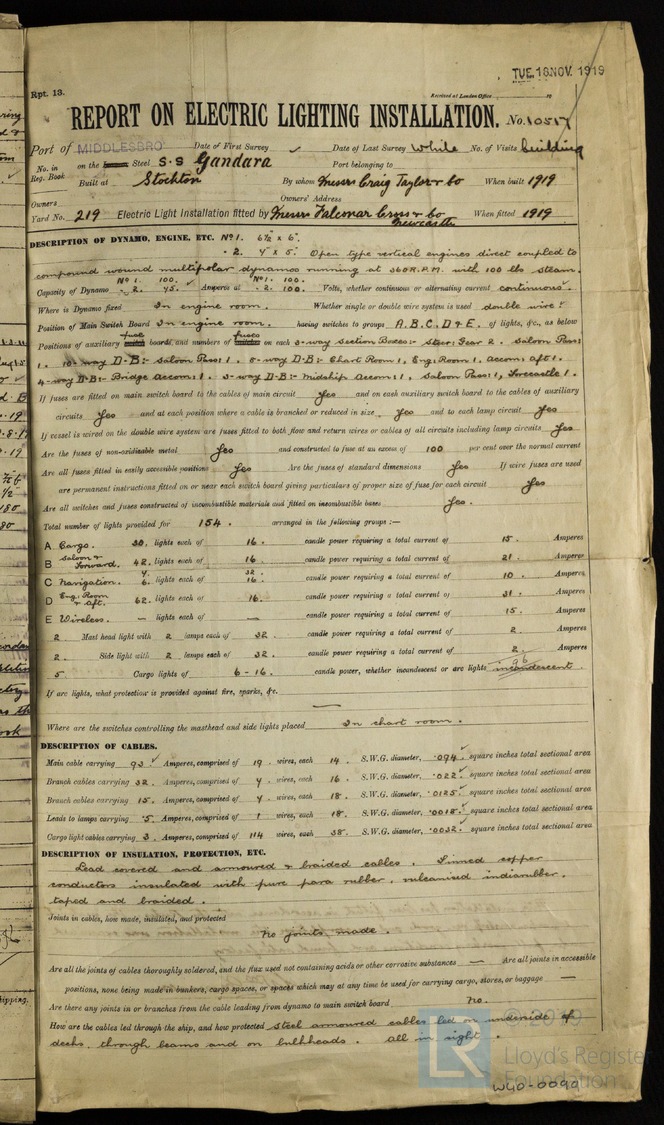 TUE. 18 NOV. 1919
Rpt. 13.
Received at London Office 19
REPORT ON ELECTRIC LIGHTING INSTALLATION. No. 10517
Port of MIDDLESBRO' Date of First Survey ✓ Date of Last Survey While No. of Visits building
No. in Reg. Book on the Steel S.S Gandara Port belonging to
Built at Stockton By whom Messrs Craig Taylor & Co When built 1919
Owners Owners' Address
Yard No. 219 Electric Light Installation fitted by Messrs Falconar Cross & Co Newcastle When fitted 1919
DESCRIPTION OF DYNAMO, ENGINE, ETC. No 1. 6½" x 6".
" 2. 4" x 5". Open type vertical engines direct coupled to
compound wound multipolar dynamos running at 360 R.P.M. with 100 lbs steam.
Capacity of Dynamo No 1. 100. " 2. 45. Amperes at No 1. 100. " 2. 100. Volts, whether continuous or alternating current continuous
Where is Dynamo fixed In engine room. Whether single or double wire system is used double wire
Position of Main Switch Board In engine room. having switches to groups A.B.C.D & E. of lights, &c., as below
Positions of auxiliary fuse boards and numbers of fuses on each 3-way Section Boxes:- Steer: Gear 2. Saloon Pass:
1. 10-way D-B:- Saloon Pass: 1. 8-way D-B:- Chart Room 1, Eng: Room 1, Accom: Aft 1.
4-way D-B:- Bridge Accom: 1. 3-way D-B:- Midship Accom: 1, Saloon Pass: 1, Forecastle 1.
If fuses are fitted on main switch board to the cables of main circuit Yes and on each auxiliary switch board to the cables of auxiliary
circuits Yes and at each position where a cable is branched or reduced in size Yes and to each lamp circuit Yes
If vessel is wired on the double wire system are fuses fitted to both flow and return wires or cables of all circuits including lamp circuits Yes
Are the fuses of non-oxidizable metal Yes and constructed to fuse at an excess of 100 per cent over the normal current
Are all fuses fitted in easily accessible positions Yes Are the fuses of standard dimensions Yes If wire fuses are used
are permanent instructions fitted on or near each switch board giving particulars of proper size of fuse for each circuit Yes
Are all switches and fuses constructed of incombustible materials and fitted on incombustible bases Yes.
Total number of lights provided for 154. arranged in the following groups :—
A Cargo. 30. lights each of 16. candle power requiring a total current of 15. Amperes
B Saloon & Forward. 42. lights each of 16. candle power requiring a total current of 21 Amperes
C Navigation. 4. 6. lights each of 32. 16. candle power requiring a total current of 10. Amperes
D Eng: Room & Aft. 62. lights each of 16. candle power requiring a total current of 31 Amperes
E Wireless. — lights each of — candle power requiring a total current of 15. Amperes
2 Mast head light with 2 lamps each of 32. candle power requiring a total current of 2. Amperes
2. Side light with 2 lamps each of 32. candle power requiring a total current of 2. Amperes
5 Cargo lights of 6 - 16. candle power, whether incandescent or arc lights incandescent.
If arc lights, what protection is provided against fire, sparks, &c.
—
Where are the switches controlling the masthead and side lights placed In chart room.
DESCRIPTION OF CABLES.
Main cable carrying 93 Amperes, comprised of 19. wires, each 14. S.W.G. diameter, .094. square inches total sectional area
Branch cables carrying 32. Amperes, comprised of 7. wires, each 16. S.W.G. diameter, .022. square inches total sectional area
Branch cables carrying 15. Amperes, comprised of 7. wires, each 18. S.W.G. diameter, .0125. square inches total sectional area
Leads to lamps carrying .5. Amperes, comprised of 1 wires, each 18. S.W.G. diameter, .0018. square inches total sectional area
Cargo light cables carrying 3. Amperes, comprised of 114 wires, each 38. S.W.G. diameter, .0032. square inches total sectional area
DESCRIPTION OF INSULATION, PROTECTION, ETC.
Lead covered and armoured & braided cables. Tinned copper
conductors insulated with pure para rubber, vulcanised indiarubber.
taped and braided.
Joints in cables, how made, insulated, and protected
No joints made.
Are all the joints of cables thoroughly soldered, and the flux used not containing acids or other corrosive substances — Are all joints in accessible
positions, none being made in bunkers, cargo spaces, or spaces which may at any time be used for carrying cargo, stores, or baggage —
Are there any joints in or branches from the cable leading from dynamo to main switch board No.
How are the cables led through the ship, and how protected Steel armoured cables led on underside of
decks, through beams and on bulkheads. All in sight.
Lloyd's Register
Foundation
W40-0090